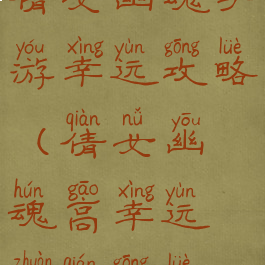 倩女幽魂手
yóu xìng yùn gōng lüè
游幸运攻略
qiàn nǚ yōu
（倩女幽
hún gāo xìng yùn
魂高幸运
zhuàn qián gōng lüè